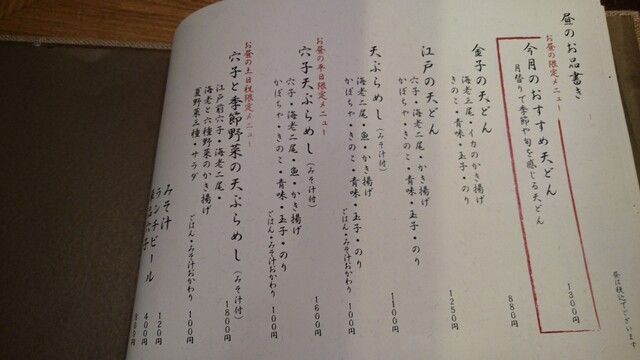 昼のお品書き
お昼の限定メニュー
今月のおすすめ天どん
月替りで季節や旬を感じる天どん
1300円
金子の天どん
880円
海老三尾・イカのかき揚げ
きのこ・青味・玉子・のり
江戸の天どん
1250円
穴子・海老二尾・かき揚げ
かぼちゃ・きのこ・青味・玉子・のり
天ぷらめし(みそ汁付)
1100円
海老二尾・魚・かき揚げ
かぼちゃ・きのこ・青味・玉子・のり
ごはん・みそ汁おかわり 100円
お昼の平日限定メニュー
穴子天ぷらめし(みそ汁付)
1600円
穴子・海老二尾・魚・かき揚げ
かぼちゃ・きのこ・青味・玉子・のり
ごはん・みそ汁おかわり 100円
お昼の土日祝限定メニュー
穴子と季節野菜の天ぷらめし(みそ汁付)
1800円
江戸前穴子・海老二尾・
海老と六種野菜のかき揚げ
夏野菜三種・サラダ
ごはん・みそ汁おかわり 100円
みそ汁 120円
ランチビール 400円
昼は税込でございます